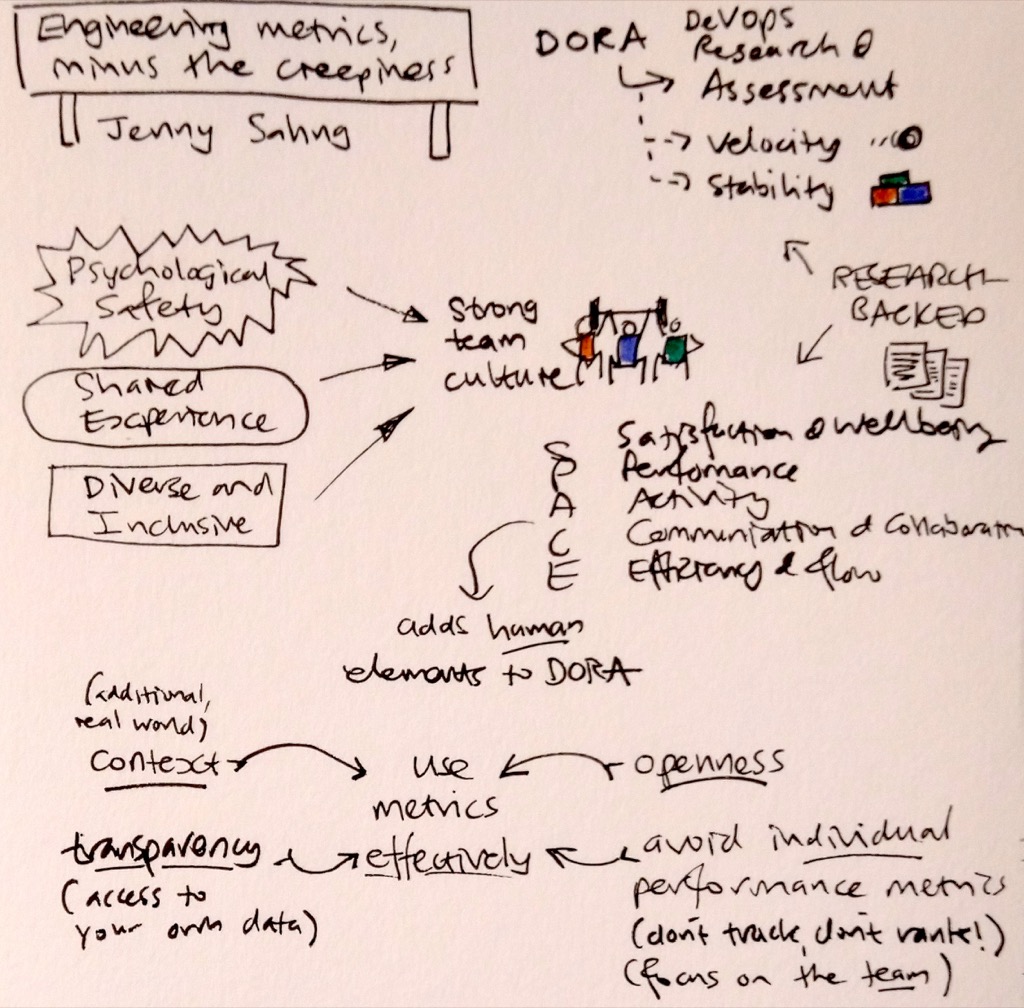 Engineering metrics,
minus the creepiness
Jenny Sahng
DORA
DeVOps
Research &
Assessment
Velocity
Stability
Psychological
Safety
Shared
Experience
Diverse and
Inclusive
Strong
team
culture
RESEARCH
BACKED
S Satisfaction & Wellbeing
P Performance
A Activity
C Communication & Collaboration
E Efficiency & flow
adds human
elements to DORA
(additional,
real world)
context
use
metrics
effectively
openness
transparency
(access to
your own data)
avoid individual
performance metrics
(don't track, don't rank!)
(focus on the team)